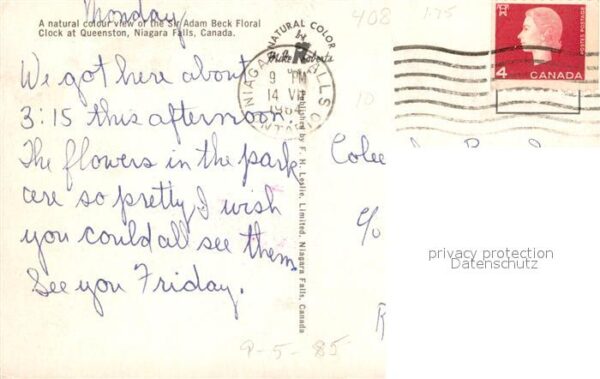 Monday
A natural colour view of the Sir Adam Beck Floral
Clock at Queenston, Niagara Falls, Canada.
We got here about
3:15 this afternoon.
The flowers in the park
are so pretty, I wish
you could all see them.
See you Friday.
NATURAL COLOR
by
Mike Roberts
Published by F. H. Leslie, Limited, Niagara Falls, Canada
NIAGARA FALLS
9 PM
14 VII
408
1.75
10
POSTES POSTAGE
4
CANADA
c/o
privacy protection
Datenschutz
P-5-85